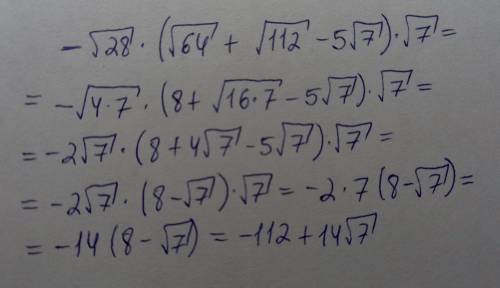 -√28 · (√64 + √112 - 5√7) · √7 =
= -√4·7 · (8 + √16·7 - 5√7) · √7 =
= -2√7 · (8 + 4√7 - 5√7) · √7 =
= -2√7 · (8 - √7) · √7 = -2 · 7 (8 - √7) =
= -14 (8 - √7) = -112 + 14√7